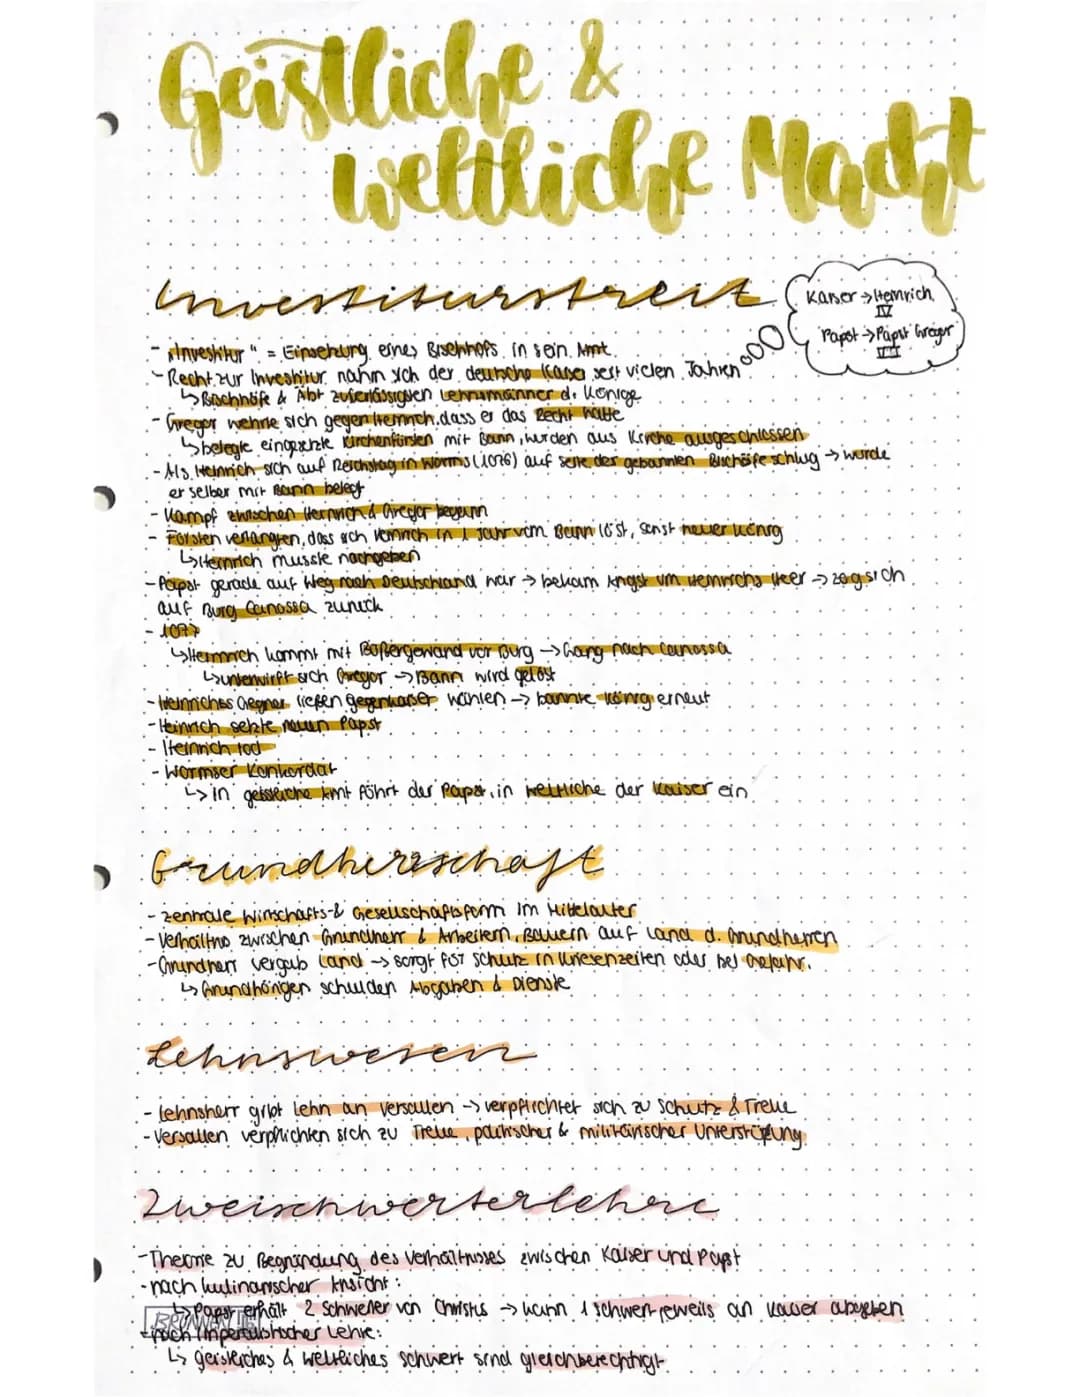 Geistliche &
weltliche Macht
Investiturstreit
Kaiser → Heinrich
IV
Papst → Papst Gregor
VII
- „Investitur" = Einsetzung eines Bischhofs in sein Amt
- Recht zur Investitur nahm sich der deutsche Kaiser seit vielen Jahren
↳ Bischhöfe & Abt zuverlässigsten Lehnsmänner d. Könige
- Gregor wehrte sich gegen Heinrich, dass er das Recht hatte
↳ belegte eingesetzte Kirchenfürsten mit Bann, wurden aus Kirche ausgeschlossen
- Als Heinrich sich auf Reichstag in Worms (1076) auf Seite der gebannten Bischöfe schlug → wurde
er selber mit Bann belegt
- Kampf zwischen Heinrich & Gregor begann
- Fürsten verlangten, dass sich Heinrich in 1 Jahr vom Bann löst, sonst neuer König
↳ Heinrich musste nachgeben
- Papst gerade auf Weg nach Deutschland war → bekam Angst um Heinrichs Heer → zog sich
auf Burg Canossa zurück
- 1077
↳ Heinrich kommt mit Büßergewand vor Burg → Gang nach Canossa
↳ unterwirft sich Gregor → Bann wird gelöst
- Heinriches Gegner ließen gegenkaiser wählen → bannte König erneut
- Heinrich setzte neuen Papst
- Heinrich tod
- Wormser Konkordat
↳ in geistliche Amt führt der Papst, in weltliche der Kaiser ein
Grundherrschaft
- zentrale Wirtschafts- & Gesellschaftsform im Mittelalter
- Verhältnis zwischen Grundherr & Arbeitern, Bauern auf Land d. Grundherren
- Grundherr vergab Land → sorgt für Schutz in Kriesenzeiten oder bei Gefahr.
↳ Grundhörigen schulden Abgaben & Dienste
Lehnswesen
- Lehnsherr gibt Lehn an Versallen → verpflichtet sich zu Schutz & Treue
- Versallen verpflichten sich zu Treue, politischer & militärischer Unterstützung
Zweischwerterlehre
- Theorie zu Begründung des Verhältnisses zwischen Kaiser und Papst
- nach kurlinarischer Ansicht:
↳ Papst erhält 2 Schwerter von Christus → kann 1 Schwert jeweils an Kaiser abgeben
- nach Imperialistischer Lehre:
↳ geistliches & weltliches Schwert sind gleichberechtigt